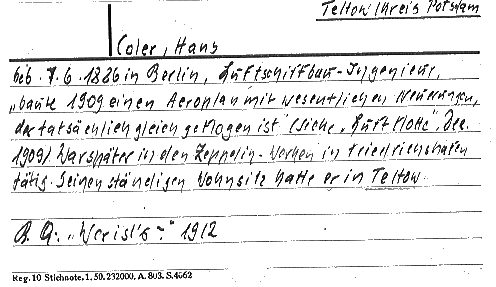 Teltow/Kreis Potsdam
Coler, Hans
Geb. 7.6.1886 in Berlin, Luftschiffbau-Ingenieur,
„baute 1909 einen Aeroplan mit wesentlichen Neuerungen,
der tatsächlich gleich geflogen ist" (siehe „Luftflotte", Dez.
1909). War später in den Zeppelin-Werken in Friedrichshafen
tätig. Seinen ständigen Wohnsitz hatte er in Teltow.
B. Q.: „Wer ist's?" 1912
Reg. 10 Stichnote. 1. 50. 232000. A. 803. S. 4662